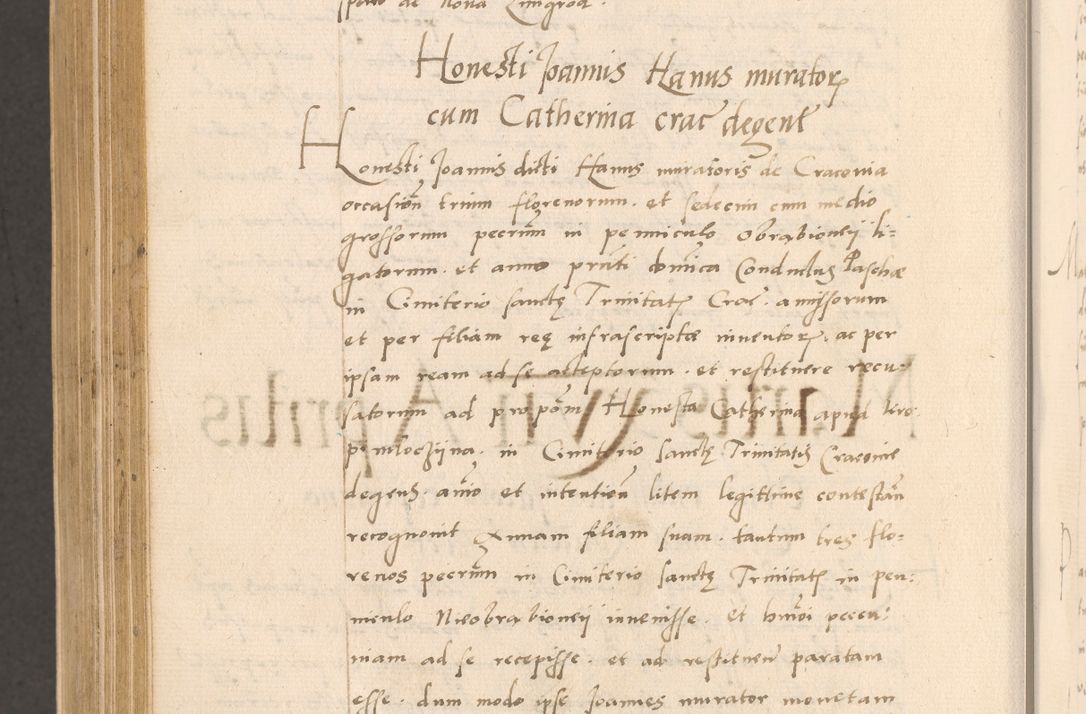 de Nova
Honesti Joannis Hanus murator
cum Catherina crac degent
Honesti Joannis dicti Hanus muratoris de Cracovia
occasion trium florenorum. et sedecim cum medio
grossorum pecun in penniculo obrabionej li=
gatorum. et anno pnti domica Conductus Paschæ
in Cimiterio sanctę Trinitat Crac. amissorum
et per filiam reę infrascriptæ inventor. ac per
ipsam ream ad se acceptorum. et restituere recu=
satorum ad propom Honesta Catherina apud
in Cimiterio sanctę Trinitatis Cracovie
degens. animo et intention litem legittime contestan
recognovit Annam filiam suam. tantum tres flo=
renos pecun in Cimiterio sanctę Trinitat in pen=
niculo Nieobrabionej invenisse. et hmoi pecu=
niam ad se recepisse. et ad restituen paratam
esse. dum modo ipse Joannes murator monetam